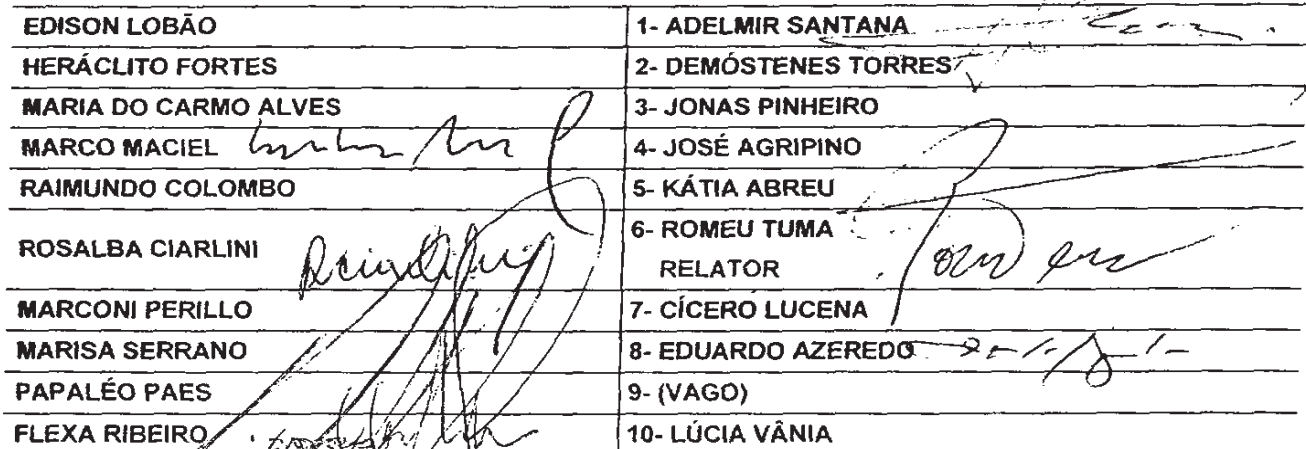 EDISON LOBÃO
1- ADELMIR SANTANA
HERÁCLITO FORTES
2- DEMÓSTENES TORRES
MARIA DO CARMO ALVES
3- JONAS PINHEIRO
MARCO MACIEL
4- JOSÉ AGRIPINO
RAIMUNDO COLOMBO
5- KÁTIA ABREU
ROSALBA CIARLINI
6- ROMEU TUMA
RELATOR
MARCONI PERILLO
7- CÍCERO LUCENA
MARISA SERRANO
8- EDUARDO AZEREDO
PAPALÉO PAES
9- (VAGO)
FLEXA RIBEIRO
10- LÚCIA VÂNIA